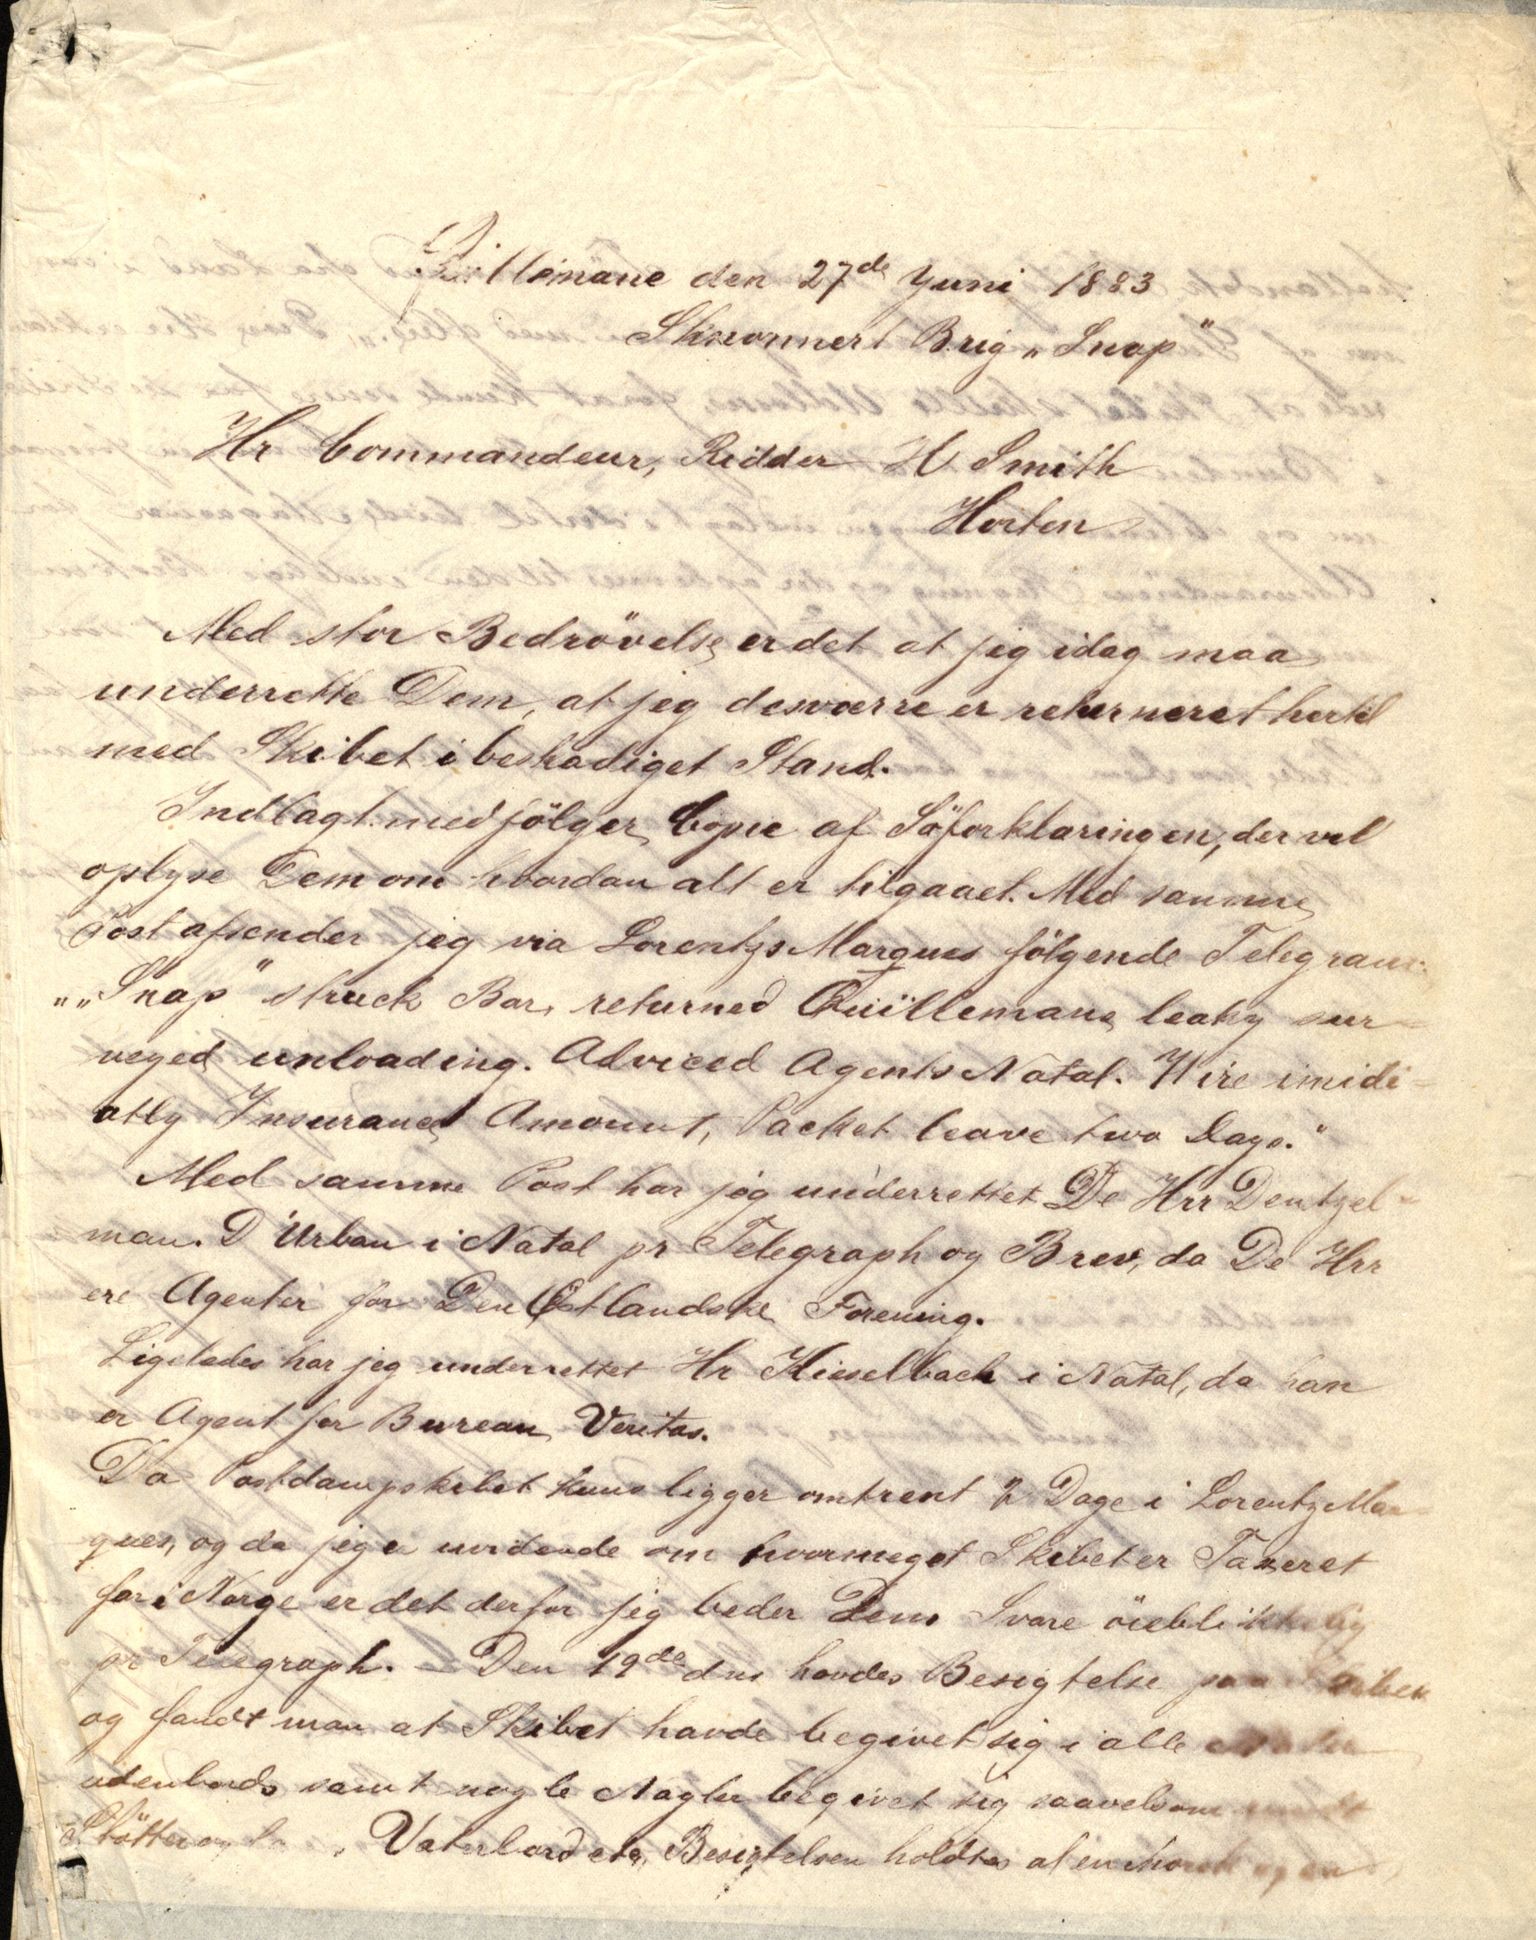 Quillemäne den 27de Juni 1883
Skonnert Brig „Snap"
Hr Commandeur, Ridder H Smith
Horten
Med stor Bedrövelse er det at jeg idag maa
underrette Dem, at jeg desværre er returneret hertil
med Skibet i beskadiget Stand.
Indlagt medfölger Copie af Söforklaringen, der vil
oplyse Dem om hvordan alt er tilgaaet. Med samme
Post afsender jeg via Lorentzs Marques fölgende Telegram:
„„Snap" struck Bar, returned Quillemane leaky sur-
veyed unloading. Adviced Agents Natal. Wire imidi-
atly Insurance Amount, Packet leave two Days."
Med samme Post har jeg underrettet De Hrr Dentzel-
man. D'Urban i Natal pr Telegraph og Brev, da De Hrr
ere Agenter for Den Östlandske Forening.
Ligeledes har jeg underrettet Hr Kieselbach i Natal, da han
er Agent for Bureau Veritas.
Da Postdampskibet kuns ligger omtrent 2 Dage i Lorentz Mar-
ques, og da jeg er uvidende om hvormeget Skibet er Taxeret
for i Norge er det derfor jeg beder Dem Svare öiebliklig
pr Telegraph. – Den 19de dns havdes Besigtelse paa Skibet
og fandt man at Skibet havde begivet sig i alle Nader
udenbords samt nogle Nagler begivet sig saavelsom
Stötter og Vaterbord etc, Besigtelsen holdtes af en Norsk og en